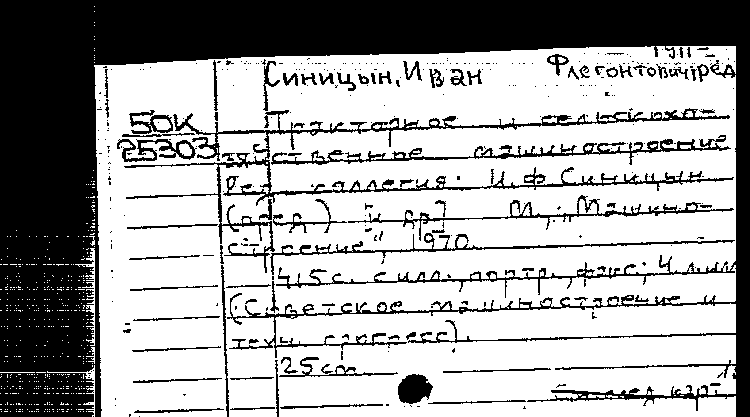 1911-
Синицын, Иван Флегонтович, ред
50К
25303
Тракторное и сельскохо-
зяйственное машиностроение
Ред. коллегия: И.Ф Синицын
(пред) [и др] М., „Машино-
строение", 1970.
415 с. с илл., портр., факс; 4 л. илл
(Советское машиностроение и
техн. прогресс).
25 cm.
след карт.